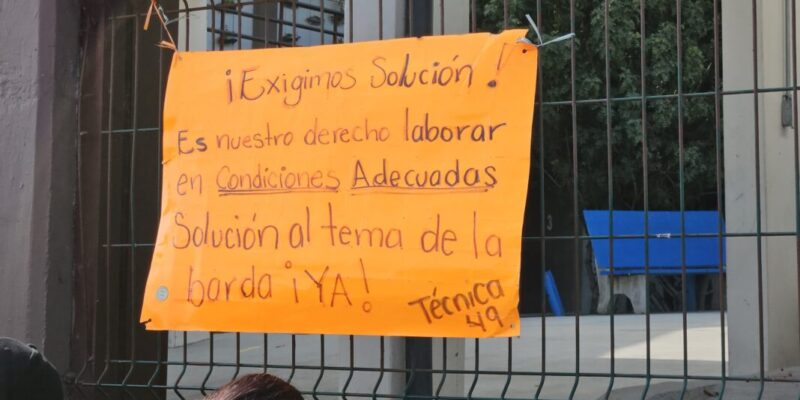 ¡Exigimos Solución!
Es nuestro derecho laborar
en Condiciones Adecuadas
Solución al tema de la
barda ¡YA!
Técnica
49